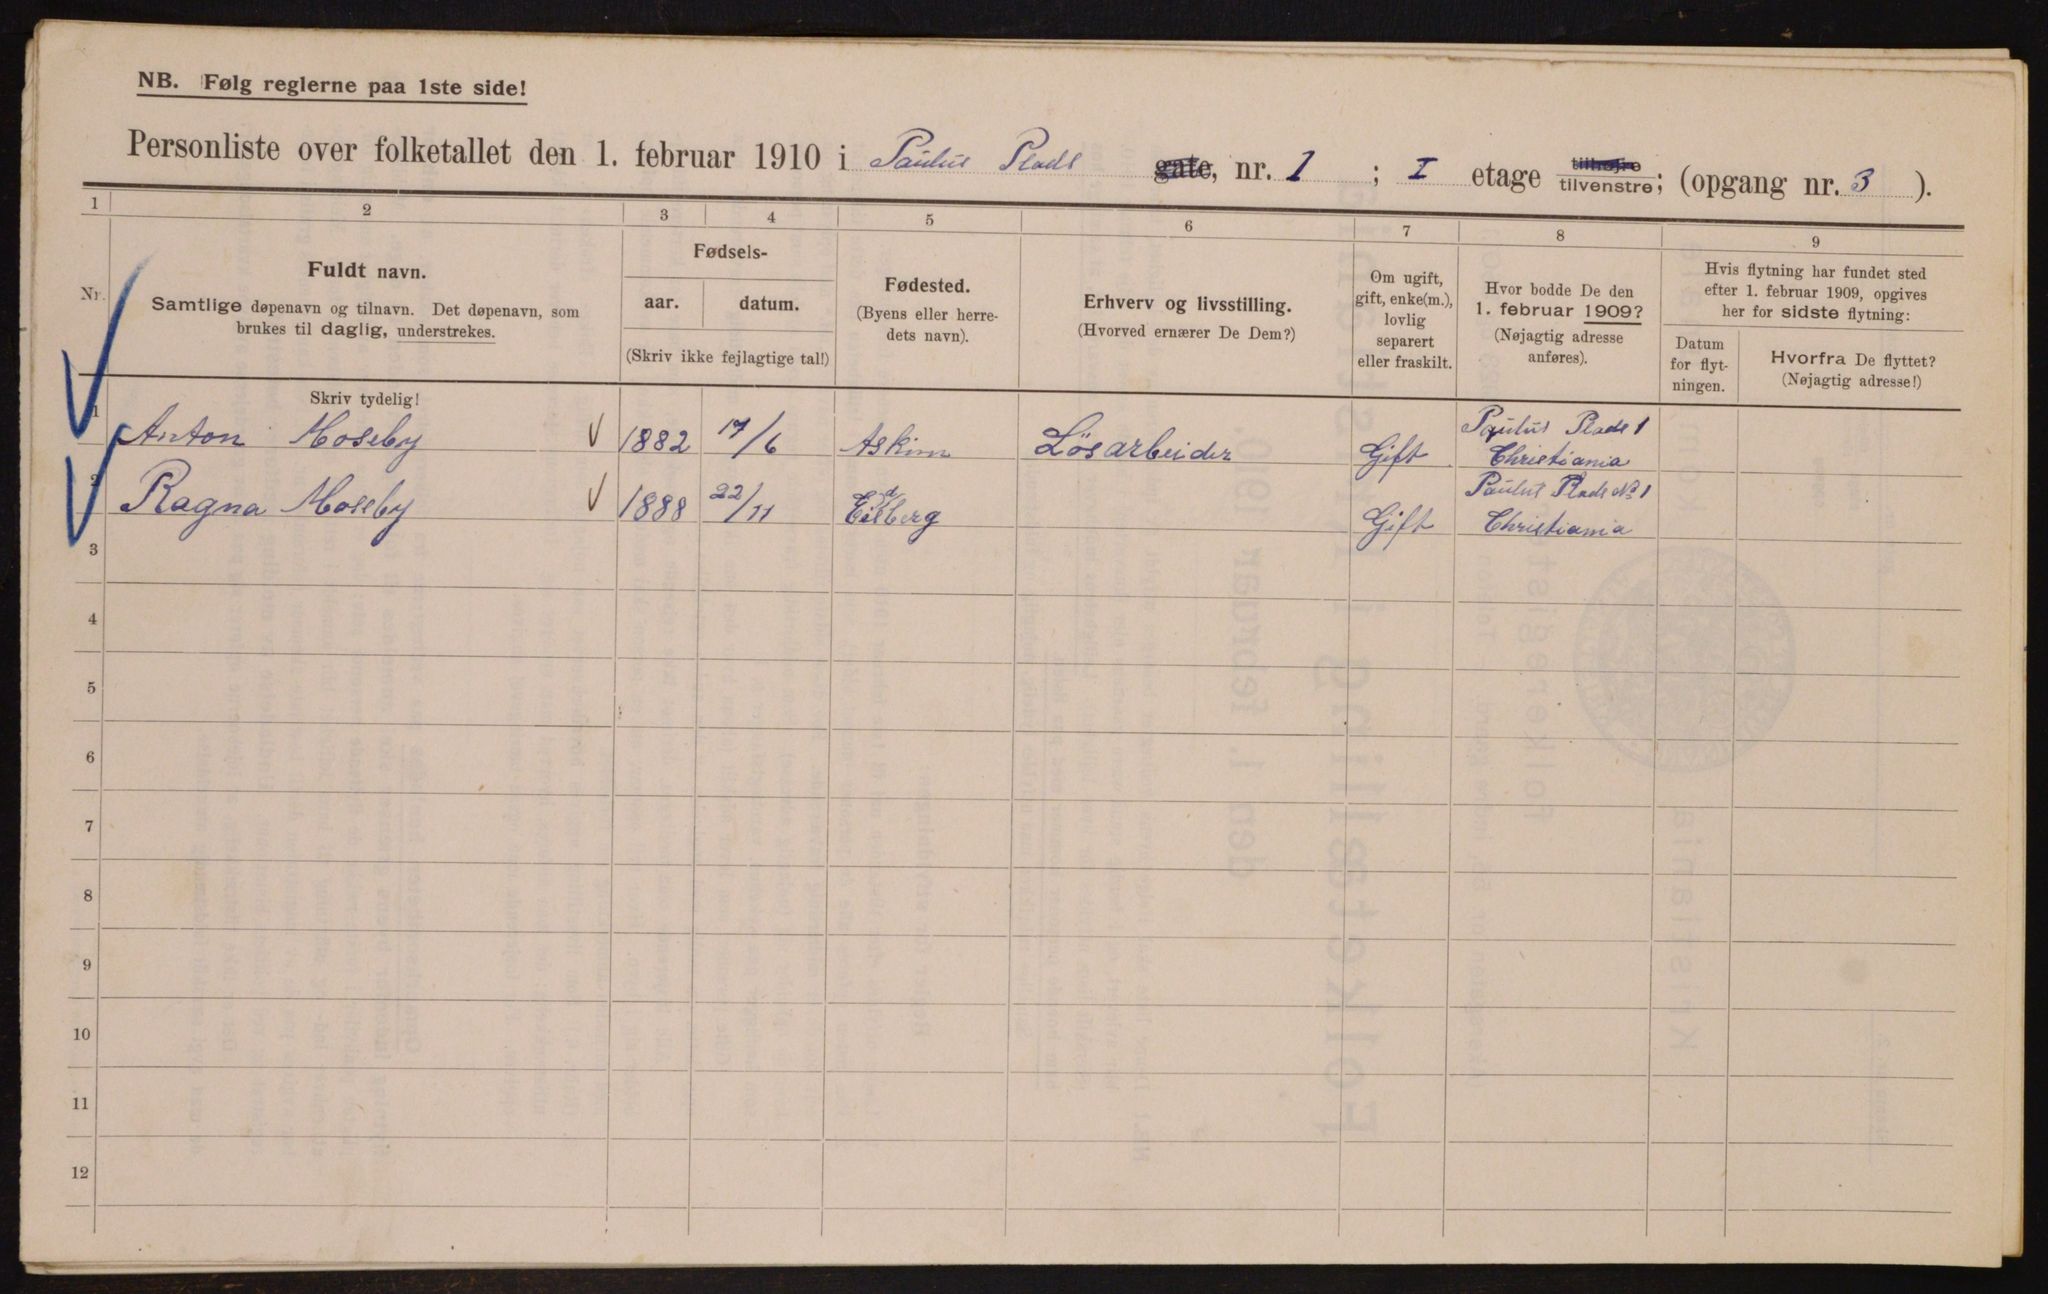 NB. Følg reglerne paa 1ste side!
Personliste over folketallet den 1. februar 1910 i Paulus Plads gate, nr. 1 ; I etage tilhøjre tilvenstre; (opgang nr. 3 ).
1 2 3 4 5 6 7 8 9
Nr.
Fuldt navn.
Samtlige døpenavn og tilnavn. Det døpenavn, som
brukes til daglig, understrekes.
Skriv tydelig!
Fødsels-
aar. datum.
(Skriv ikke fejlagtige tal!)
Fødested.
(Byens eller herre-
dets navn).
Erhverv og livsstilling.
(Hvorved ernærer De Dem?)
Om ugift,
gift, enke(m.),
lovlig
separert
eller fraskilt.
Hvor bodde De den
1. februar 1909?
(Nøjagtig adresse
anføres).
Hvis flytning har fundet sted
efter 1. februar 1909, opgives
her for sidste flytning:
Datum
for flyt-
ningen.
Hvorfra De flyttet?
(Nøjagtig adresse!)
1 Anton Moseby 1882 17/6 Askim Løsarbeider Gift Paulus Plads 1
Christiania
2 Ragna Moseby 1888 22/11 Eidsberg Gift Paulus Plads No 1
Christiania
3
4
5
6
7
8
9
10
11
12